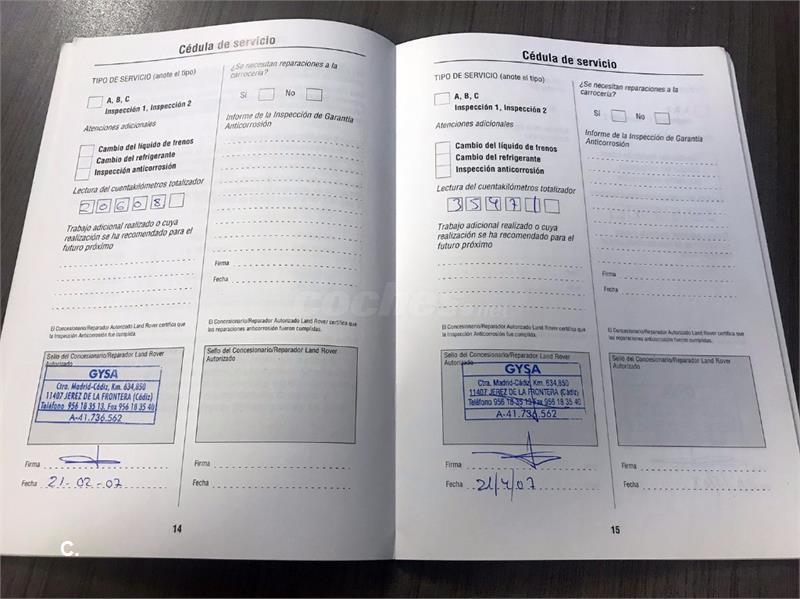 Cédula de servicio
TIPO DE SERVICIO (anote el tipo)
A, B, C
Inspección 1, Inspección 2
Atenciones adicionales
Cambio del líquido de frenos
Cambio del refrigerante
Inspección anticorrosión
Lectura del cuentakilómetros totalizador
20608
Trabajo adicional realizado o cuya
realización se ha recomendado para el
futuro próximo
El Concesionario/Reparador Autorizado Land Rover certifica que
la Inspección Anticorrosión fue cumplida.
Sello del Concesionario/Reparador Land Rover
Autorizado
GYSA
Ctra. Madrid-Cádiz, Km. 634,850
11407 JEREZ DE LA FRONTERA (Cádiz)
Teléfono 956 18 35 13. Fax 956 18 35 40
A-41.736.562
Firma
Fecha 21-02-07
¿Se necesitan reparaciones a la
carrocería?
Sí No
Informe de la Inspección de Garantía
Anticorrosión
Firma
Fecha
El Concesionario/Reparador Autorizado Land Rover certifica que
las reparaciones anticorrosión fueron cumplidas.
Sello del Concesionario/Reparador Land Rover
Autorizado
Firma
Fecha
14
Cédula de servicio
TIPO DE SERVICIO (anote el tipo)
A, B, C
Inspección 1, Inspección 2
Atenciones adicionales
Cambio del líquido de frenos
Cambio del refrigerante
Inspección anticorrosión
Lectura del cuentakilómetros totalizador
35471
Trabajo adicional realizado o cuya
realización se ha recomendado para el
futuro próximo
El Concesionario/Reparador Autorizado Land Rover certifica que
la Inspección Anticorrosión fue cumplida.
Sello del Concesionario/Reparador Land Rover
Autorizado
GYSA
Ctra. Madrid-Cádiz, Km. 634,850
11407 JEREZ DE LA FRONTERA (Cádiz)
Teléfono 956 18 35 13. Fax 956 18 35 40
A-41.736.562
Firma
Fecha 21/7/07
¿Se necesitan reparaciones a la
carrocería?
Sí No
Informe de la Inspección de Garantía
Anticorrosión
Firma
Fecha
El Concesionario/Reparador Autorizado Land Rover certifica que
las reparaciones anticorrosión fueron cumplidas.
Sello del Concesionario/Reparador Land Rover
Autorizado
Firma
Fecha
15
coches.net
C.